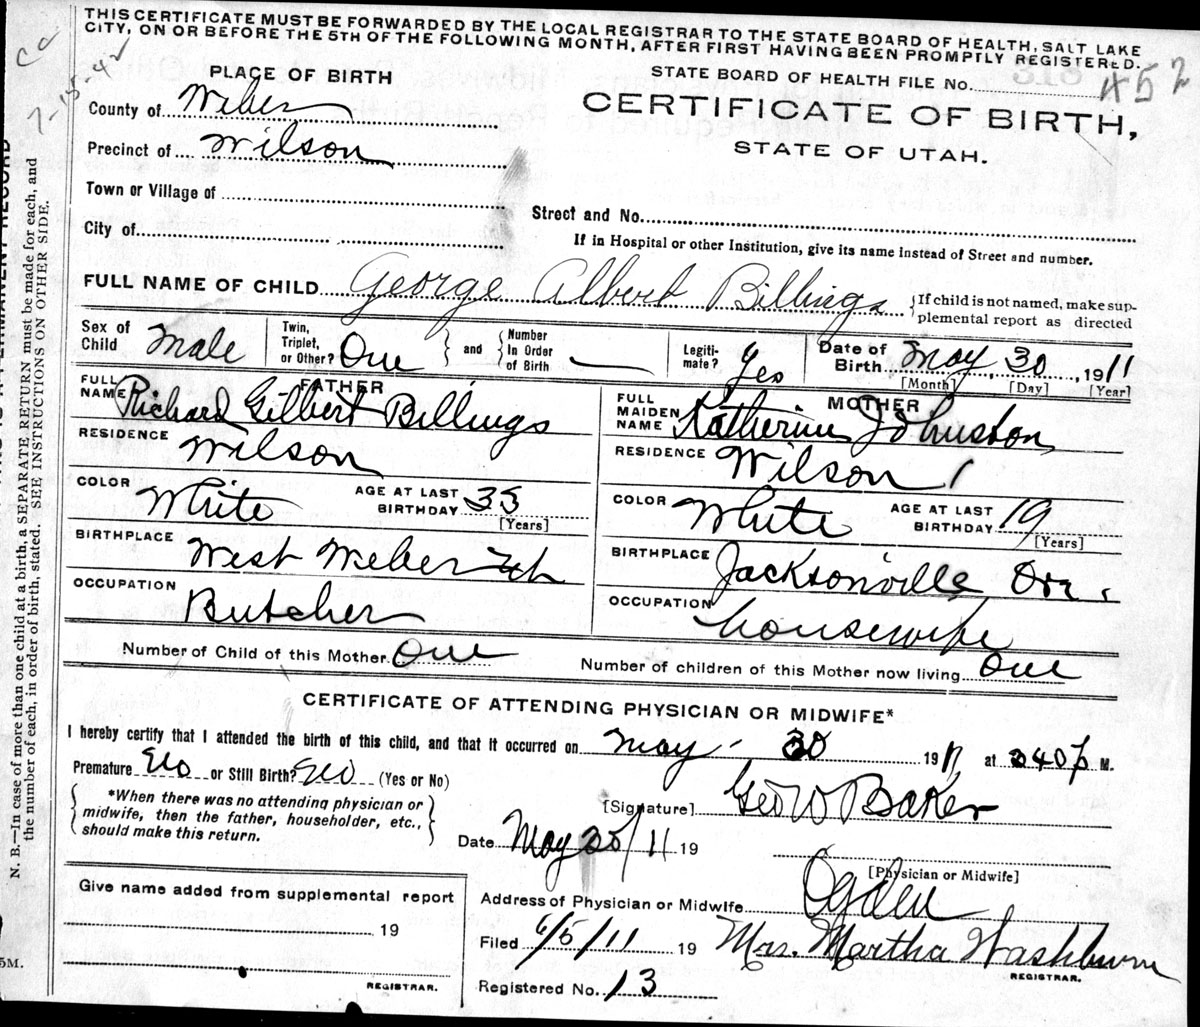 THIS CERTIFICATE MUST BE FORWARDED BY THE LOCAL REGISTRAR TO THE STATE BOARD OF HEALTH, SALT LAKE
CITY, ON OR BEFORE THE 5TH OF THE FOLLOWING MONTH, AFTER FIRST HAVING BEEN PROMPTLY REGISTERED.
PLACE OF BIRTH
STATE BOARD OF HEALTH FILE No. 452
County of Weber
CERTIFICATE OF BIRTH,
Precinct of Wilson
STATE OF UTAH.
Town or Village of
Street and No.
City of
If in Hospital or other Institution, give its name instead of Street and number.
FULL NAME OF CHILD George Albert Billings {If child is not named, make sup-
plemental report as directed
Sex of Child Male Twin, Triplet, or Other? One } and { Number In Order of Birth — Legiti-mate? Yes Date of Birth May 30, 1911
[Month] [Day] [Year]
FATHER
FULL NAME Richard Gilbert Billings
RESIDENCE Wilson
COLOR White AGE AT LAST BIRTHDAY 33
[Years]
BIRTHPLACE West Weber Utah
OCCUPATION Butcher
MOTHER
FULL MAIDEN NAME Katherine Johnston
RESIDENCE Wilson
COLOR White AGE AT LAST BIRTHDAY 19
[Years]
BIRTHPLACE Jacksonville Or.
OCCUPATION housewife
Number of Child of this Mother One Number of children of this Mother now living One
CERTIFICATE OF ATTENDING PHYSICIAN OR MIDWIFE*
I hereby certify that I attended the birth of this child, and that it occurred on May 30 1911, at 240 P M.
Premature No or Still Birth? No (Yes or No)
{*When there was no attending physician or
midwife, then the father, householder, etc.,
should make this return.}
[Signature] Geo W Baker
Date May 30/11 19
[Physician or Midwife]
Give name added from supplemental report
19
REGISTRAR.
Address of Physician or Midwife Ogden
Filed 6/5/11 19 Mrs. Martha Washburn
REGISTRAR.
Registered No. 13
N. B.—In case of more than one child at a birth, a SEPARATE RETURN must be made for each, and
the number of each, in order of birth, stated. SEE INSTRUCTIONS ON OTHER SIDE.
7-15-42
5M.